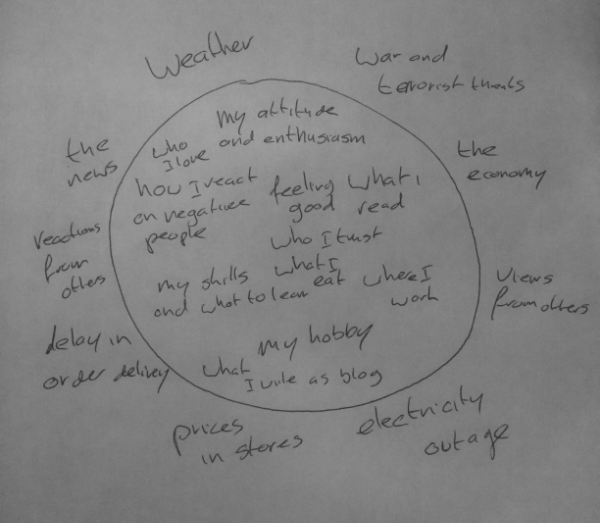 Weather
War and
terrorist threats
the
news
the
economy
reactions
from
others
views
from others
delay in
order delivery
prices
in stores
electricity
outage
my attitude
and enthusiasm
who
I love
how I react
on negative
people
feeling
good
what I
read
who I trust
my skills
and what to learn
what I
eat
where I
work
my hobby
what
I write as blog